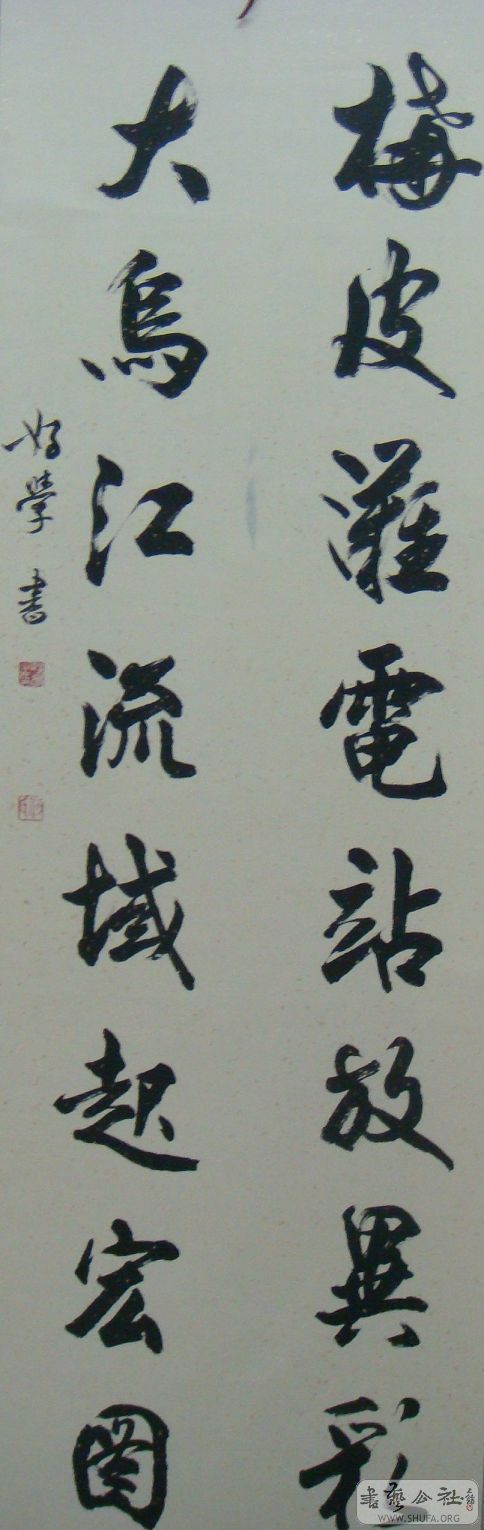 構皮灘電站放異彩
大烏江流域起宏圖
好學書
書藝公社
WWW.SHUFA.ORG